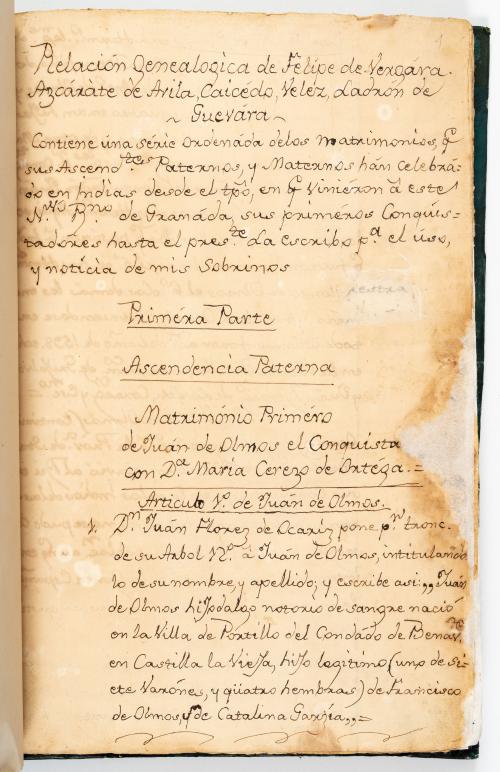 1
Relación Genealogica de Felipe de Vergára.
Azcaráte de Avila, Caicédo, Velez, Ladrón de
~ Guevára ~
Contiene una serie ordenáda delos matrimonios, q̃
sus Ascend.tes Paternos, y Maternos hán celebrá-
do en Indias desde el tpõ, en q̃ Viniéron à este
N.vo R.no de Granáda, sus priméros Conquis=
tadóres hasta el pres.te La escribo p.a el úso,
y noticia de mis Sobrinos
Priméra Parte
Ascendencia Paterna
Matrimónio Priméro
de Juán de Olmos el Conquista
con D.a María Cerezo de Ortéga.=
Articulo 1º. de Juán de Olmos.
1. D.n Juán Florez de Ocariz pone p.r tronc.
de su Arbol Nº. à Juán de Olmos, intitulando
lo de su nombre, y apellido; y escribe asi: ,, Juán
de Olmos hiJodalgo notorio de sangre nació
en la Villa de Portillo del Condádo de Benav.te
en Castilla la VieJa, hiJo legitimo (uno de si-
ete Varónes, y qüatro hembras) de Francisco
de Olmos, y de Catalina García,,=